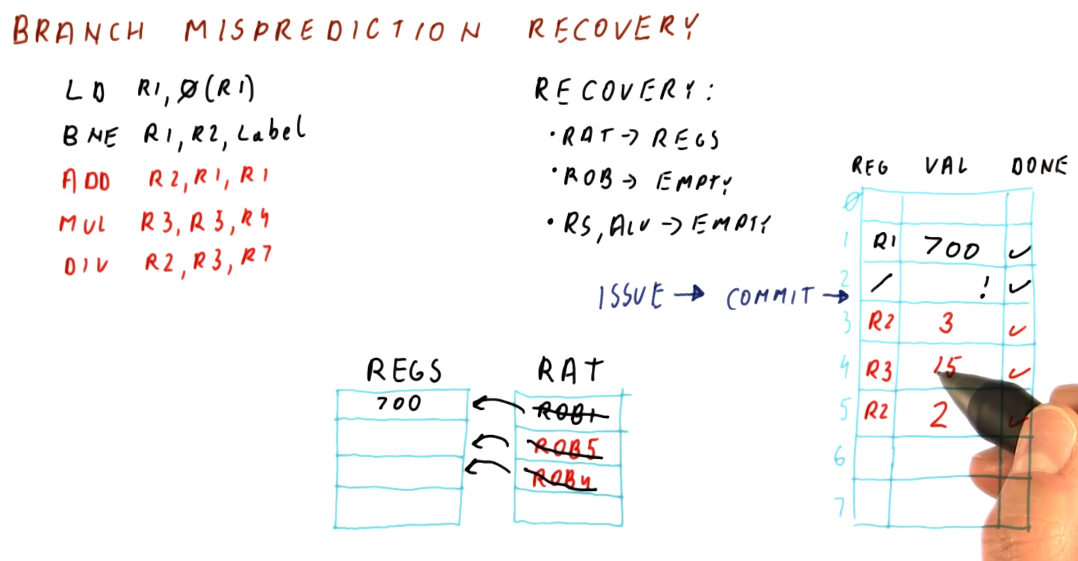 BRANCH MISPREDICTION RECOVERY
LD R1, 0(R1)
BNE R1, R2, Label
ADD R2, R1, R1
MUL R3, R3, R4
DIV R2, R3, R7
RECOVERY:
• RAT → REGS
• ROB → EMPTY
• RS, ALU → EMPTY
ISSUE → COMMIT →
REG VAL DONE
0
1 R1 700 ✓
2 / ! ✓
3 R2 3 ✓
4 R3 15 ✓
5 R2 2 ✓
6
7
REGS RAT
700 ← ROB1
← ROB5
← ROB4